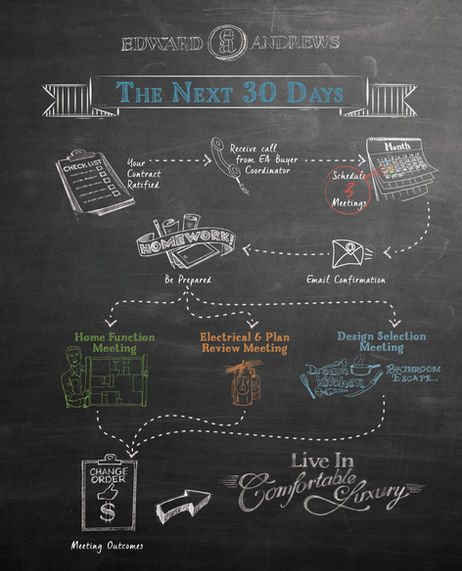 EDWARD ea ANDREWS
THE NEXT 30 DAYS
CHECKLIST
Your
Contract
Ratified
Receive call
from EA Buyer
Coordinator
Month
Schedule
3
Meetings
HOMEWORK!
Be Prepared
Email Confirmation
Home Function
Meeting
Electrical & Plan
Review Meeting
Design Selection
Meeting
Dream
Kitchen
BATHROOM
ESCAPE...
CHANGE
ORDER
$
Meeting Outcomes
Live In
Comfortable Luxury